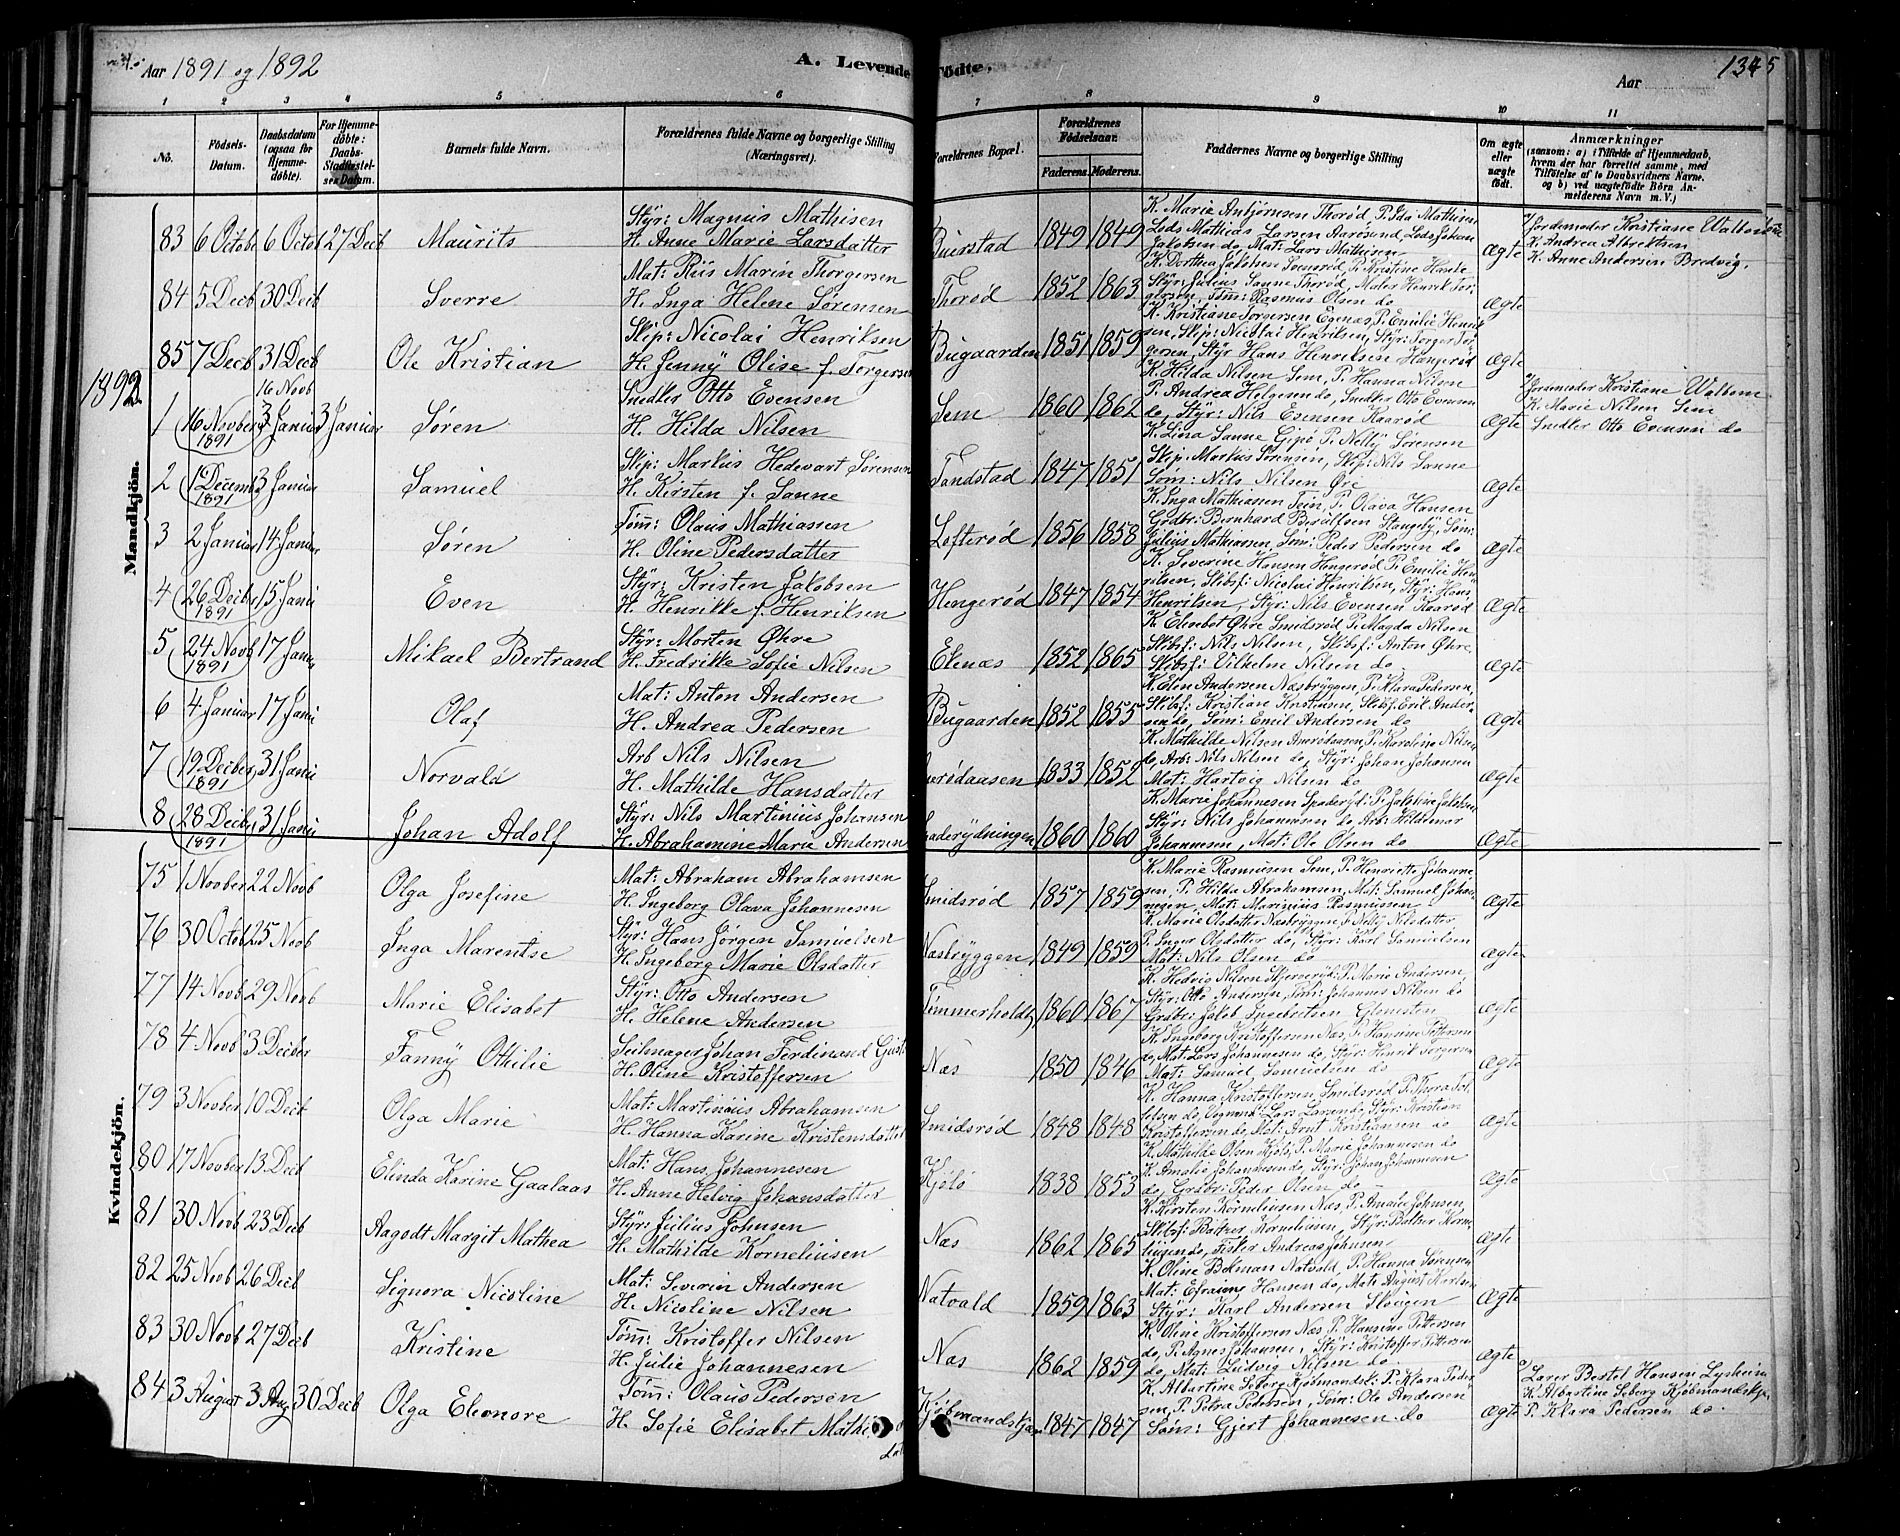 Aar 1891 og 1892
A. Levende Fødte.
Aar
1345
1 2 3 4 5 6 7 8 9 10 11
No.
Fødsels-Datum.
Daabsdatum (ogsaa for Hjemme-døbte).
For Hjemme-døbte: Daabs-Stadfæstel-ses Datum.
Barnets fulde Navn.
Forældrenes fulde Navne og borgerlige Stilling (Næringsvei).
Forældrenes Bopæl.
Forældrenes Fødselsaar.
Faderens. Moderens.
Faddernes Navne og borgerlige Stilling
Om ægte eller uægte født.
Anmærkninger (saasom: a) i Tilfælde af Hjemmedaab, hvem der har forrettet samme, med Tilføielse af to Daabsvidners Navne, og b) ved uægtefødte Børn Anmelderens Navn m.V.)
Mandkjön.
83 6 Octobe 6 Octob 27 Decb Maurits Styr: Magnus Mathisen
H. Anne Marie Larsdatter Buerstad 1849 1849 K. Marie Anbjørnsen Thorød, P. Ida Mathisen
Lods Mathias Larsen Aarøsund, Lods Johan
Jakobsen do, Mat: Lars Mathisen Ægte
Jordemoder Kristiane Walbom
K. Andrea Albrektsen
K. Anne Andersen Bredvig.
84 5 Decb 30 Decb Sverre Mat: Riis Marin Thorgersen
H. Inga Helene Sørensen Thorød 1852 1863 K. Dorthea Jakobsen Smidsrød, P. Kristine
Styr: Julius Sanne Thorød, Mat: Henrik
Tøm: Rasmus Olsen do Ægte
85 7 Decb 31 Decb Ole Kristian Skip: Nicolai Henriksen
H. Jenny Olise f. Torgersen Bugaarden 1851 1859 K. Kristiane Torgersen Egenæs, P. Emilie Henrik
sen, Skip: Nicolai Henriksen, Styr: Torger Tor
gersen, Styr Hans Henriksen Hængerød Ægte
1892
1 16 Novber 1891 16 Novb 3 Januar 3 Januar Søren Snedker Otto Evensen
H. Hilda Nilsen Sem 1860 1862 K. Hilda Nilsen Sem, P. Hanna Nilsen
P. Andrea Helgesen do, Snedker Otto Evensen
do, Styr: Nils Evensen Kaarød Ægte
Jordemoder Kristiane Walbom
K. Marie Nilsen Sem
Snedker Otto Evensen do
2 1 Decemb 1891 3 Januar Samuel Skip: Markus Hedevart Sørensen
H. Kirsten f. Sanne Tandstad 1847 1851 K. Lina Sanne Gipø P. Nelly Sørensen
Skip: Markus Sørensen, Skip: Nils Sanne
Tøm: Nils Nilsen Øre Ægte
3 2 Januar 14 Januar Søren Tøm: Olaus Mathiassen
H. Oline Pedersdatter Lofterød 1856 1858 K. Inga Mathiassen Tein, P. Olava Hansen
Grdbr: Bernhard Berulfsen Stangeby, Tøm:
Julius Mathiassen, Tøm: Peder Pedersen do Ægte
4 26 Decbr 1891 15 Janu Even Styr: Kristen Jakobsen
H. Henrikke f. Henriksen Hengerød 1847 1854 K. Severine Hansen Hengerød P. Emilie Hen
riksen, Skibsf: Nicolai Henriksen, Styr: Hans
Henriksen, Styr: Nils Evensen Kaarød Ægte
5 24 Novb 1891 17 Janu Mikael Bertrand Styr: Morten Øhre
H. Fredrikke Sofie Nilsen Ekenæs 1852 1865 K. Elisabet Øhre Smidsrød P. Magda Nilsen
Skibsf: Nils Nilsen, Skibsf: Anton Øhre,
Skibsf: Vilhelm Nilsen do Ægte
6 4 Januar 17 Janu Olaf Mat: Anton Andersen
H. Andrea Pedersen Bugaarden 1852 1855 K. Elen Andersen Næsbryggen, P. Klara Pedersen,
Skibsf: Kristian Kristensen, Skibsf: Emil Ander
sen do, Tøm: Emil Andersen do Ægte
7 19 Decber 1891 31 Janu Norvald Arb Nils Nilsen
H. Mathilde Hansdatter urødaasen 1833 1852 K. Mathilde Nilsen Aurødaasen, P. Karoline Nilsen
do, Arb: Nils Nilsen do, Styr: Johan Johansen
Mat: Hartvig Nilsen do Ægte
8 28 Decbr 1891 31 Janu Johan Adolf Styr: Nils Martinius Johansen
H. Abrahamine Marie Andersen aderydningen 1860 1860 K. Marie Johannesen Spaderyd: P. Jakobine Jakobsen
Styr: Nils Johannesen do, Arb: Hildemar
Johannesen, Mat: Ole Olsen do Ægte
Kvindekjön.
75 1 Novber 22 Novb Olga Josefine Mat: Abraham Abrahamsen
H. Ingeborg Olava Johannesen Smidsrød 1857 1859 K. Marie Rasmussen Sem, P. Henriette Johanne
sen, P. Hilda Abrahamsen, Mat: Samuel Johan
nesen, Mat: Marinius Rasmussen Ægte
76 30 Octob 25 Novb Inga Marentse Styr: Hans Jørgen Samuelsen
H. Ingeborg Marie Olsdatter Næsbryggen 1849 1859 K. Marie Olsdatter Næsbryggen, P. Nelly Nilsdatter
P. Inger Olsdatter do, Styr: Karl Samuelsen
Mat: Nils Olsen do Ægte
77 14 Novb 29 Novb Marie Elisabet Styr: Otto Andersen
H. Helene Andersen Tømmerholdt 1860 1867 K. Hedvig Nilsen Stjerneryd: P. Marie Andersen,
Styr: Otto Andersen, Tøm: Johannes Nilsen do
Grdbr: Jakob Ingebertsen Ægte
78 4 Novb 3 Decber Fanny Othilie Seilmager Johan Ferdinand
H. Oline Kristoffersen Næs 1850 1846 K. Ingeborg Kristoffersen Næs, P. Hansine Pettersen
do, Mat: Lars Johannesen do, Styr: Henrik Torgersen
Mat: Samuel Samuelsen do Ægte
79 3 Novber 10 Decb Olga Marie Mat: Martinius Abrahamsen
H. Hanna Karine Kristensdatter Smidsrød 1848 1848 K. Hanna Kristoffersen Smidsrød P. Thora Tol
lefsen do, Lars Larsen do, Styr: Kristian
Kristoffersen do, Mat: Arnt Kristiansen do Ægte
80 17 Novber 13 Decb Elinda Karine Gaalaas Mat: Hans Johannesen
H. Anne Helvig Johansdatter Kjøle 1838 1853 K. Mathilde Olsen Kjøle, P. Marie Johannesen do
K. Amalie Johannesen do, Styr: Johan Johannesen
do, Grdbr: Peder Olsen do Ægte
81 30 Novb 23 Decb Aagodt Margit Mathea Styr: Julius Johnsen
H. Mathilde Korneliusen Næs 1862 1865 K. Kirsten Korneliusen Næs, P. Amalie Johnsen,
Skibsf: Baltzer Korneliusen, Styr: Baltzer Korne
liusen do, Fisker Andreas Johnsen Ægte
82 25 Novb 26 Decb Signora Nicoline Mat: Severin Andersen
H. Nicoline Nilsen Natvald 1859 1863 K. Oline Bekman Natvald, P. Hanna Sørensen
Mat: Efraim Hansen do, Mat: August Karlsen
Styr: Karl Andersen Skougen Ægte
83 30 Novb 27 Decb Kristine Tøm: Kristoffer Nilsen
H. Julie Johannesen Næs 1862 1859 K. Oline Kristoffersen Næs, P. Hansine Pettersen
do, P. Agnes Johansen, Styr: Kristoffer Pettersen
do, Mat: Ludvig Nilsen do Ægte
84 3 August 3 Aug 30 Decb Olga Eleonore Tøm: Olaus Pedersen
H. Sofie Elisabet Mathi Kjøbmandskjær 1847 1847 K. Albartine Seberg Kjøbmandsk: P. Klara Peder
sen, P. Petra Pedersen, Tøm: Ole Andersen
Tøm: Gjert Johannesen do Ægte
Lærer Bertel Hansen Lysheim
K. Albartine Seberg Kjøbmandskjær
P. Klara Pedersen do.